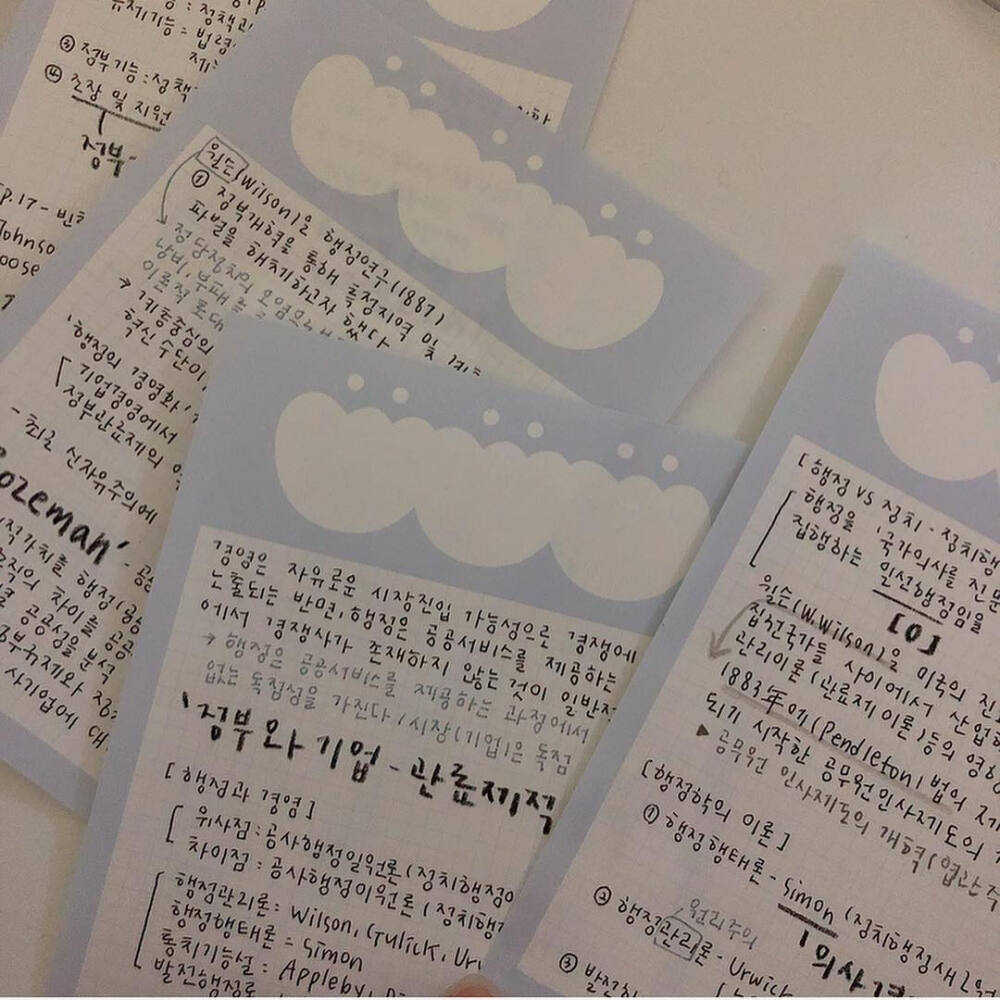 : 정책
유지기능 = 법령
③ 정부기능 : 정책
④ 조장 및 지원
정부-
p.17 - 빈
Johnso
oose
윌슨(Wilson)은 행정연구(1887)
① 정부개혁을 통해 특정지역 및
파벌을 해치하고자 했다
정당정치의 오염으
낭비, 부패를
이론적 토대
→ 계층중심의
혁신 수단이
'행정의 경영화'
기업경영에서
정부관료제의
- 최근 신자유주의에
ozeman' -
적가치를 행정(공
조직의 차이를 공공
공공성을 분석
정부규제와
사기업에
경영은 자유로운 시장진입 가능성으로 경쟁에
노출되는 반면, 행정은 공공서비스를 제공하는
에서 경쟁사가 존재하지 않는 것이 일반적
→ 행정은 공공서비스를 제공하는 과정에서
없는 독점성을 가진다 (시장(기업)은 독점
'정부와 기업 - 관료제적
[행정과 경영]
유사점 : 공사행정일원론 (정치행정이
차이점 : 공사행정이원론 (정치행정
행정관리론 : Wilson, Gulick, Ur
행정행태론 = Simon
통치기능설 : Appleby,
발전행정론
[행정 VS 정치 - 정치행
행정을 '국가의사를 전문
집행하는 인선행정임을
[O]
윌슨(W.Wilson)은 미국의 진
집전국가들 사이에서 산업화
관리이론 (관료제 이론)등의 영향
1883年에 (Pendleton)법의
되기 시작한 공무원인사제도의
▶ 공무원 인사제도의 개혁 (엽관주
[행정학의 이론]
① 행정행태론 - Simon (정치행정새2원
의사결
원리주의
② 행정관리론 - Urwick
③ 발전행